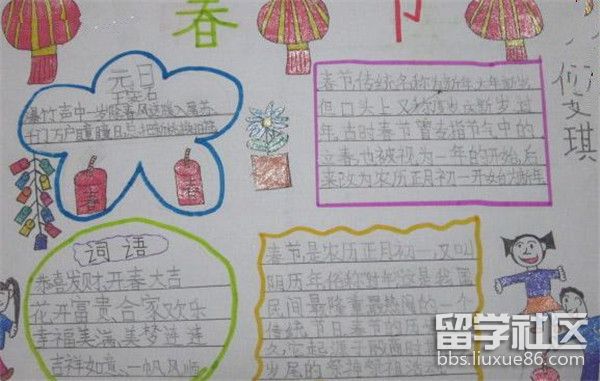 春节
元日
王安石
爆竹声中一岁除春风送暖入屠苏
千门万户曈曈日总把新桃换旧符
春节传统名称为新年、大年、新岁
但口头上又称度岁、庆新岁、过
年,古时春节曾专指节气中的
立春,也被视为一年的开始,后
来改为农历正月初一开始为新年
倪安琪
春
春
词语
恭喜发财,开春大吉
花开富贵,合家欢乐
幸福美满、美梦连连
吉祥如意、一帆风顺
春节是农历正月初一,又叫
阴历年,俗称
这是我国
民间最隆重最热闹的一个
传统节日,春节的历
久,它起源于
发尾的祭
留学社区
bbs.liuxue86.com